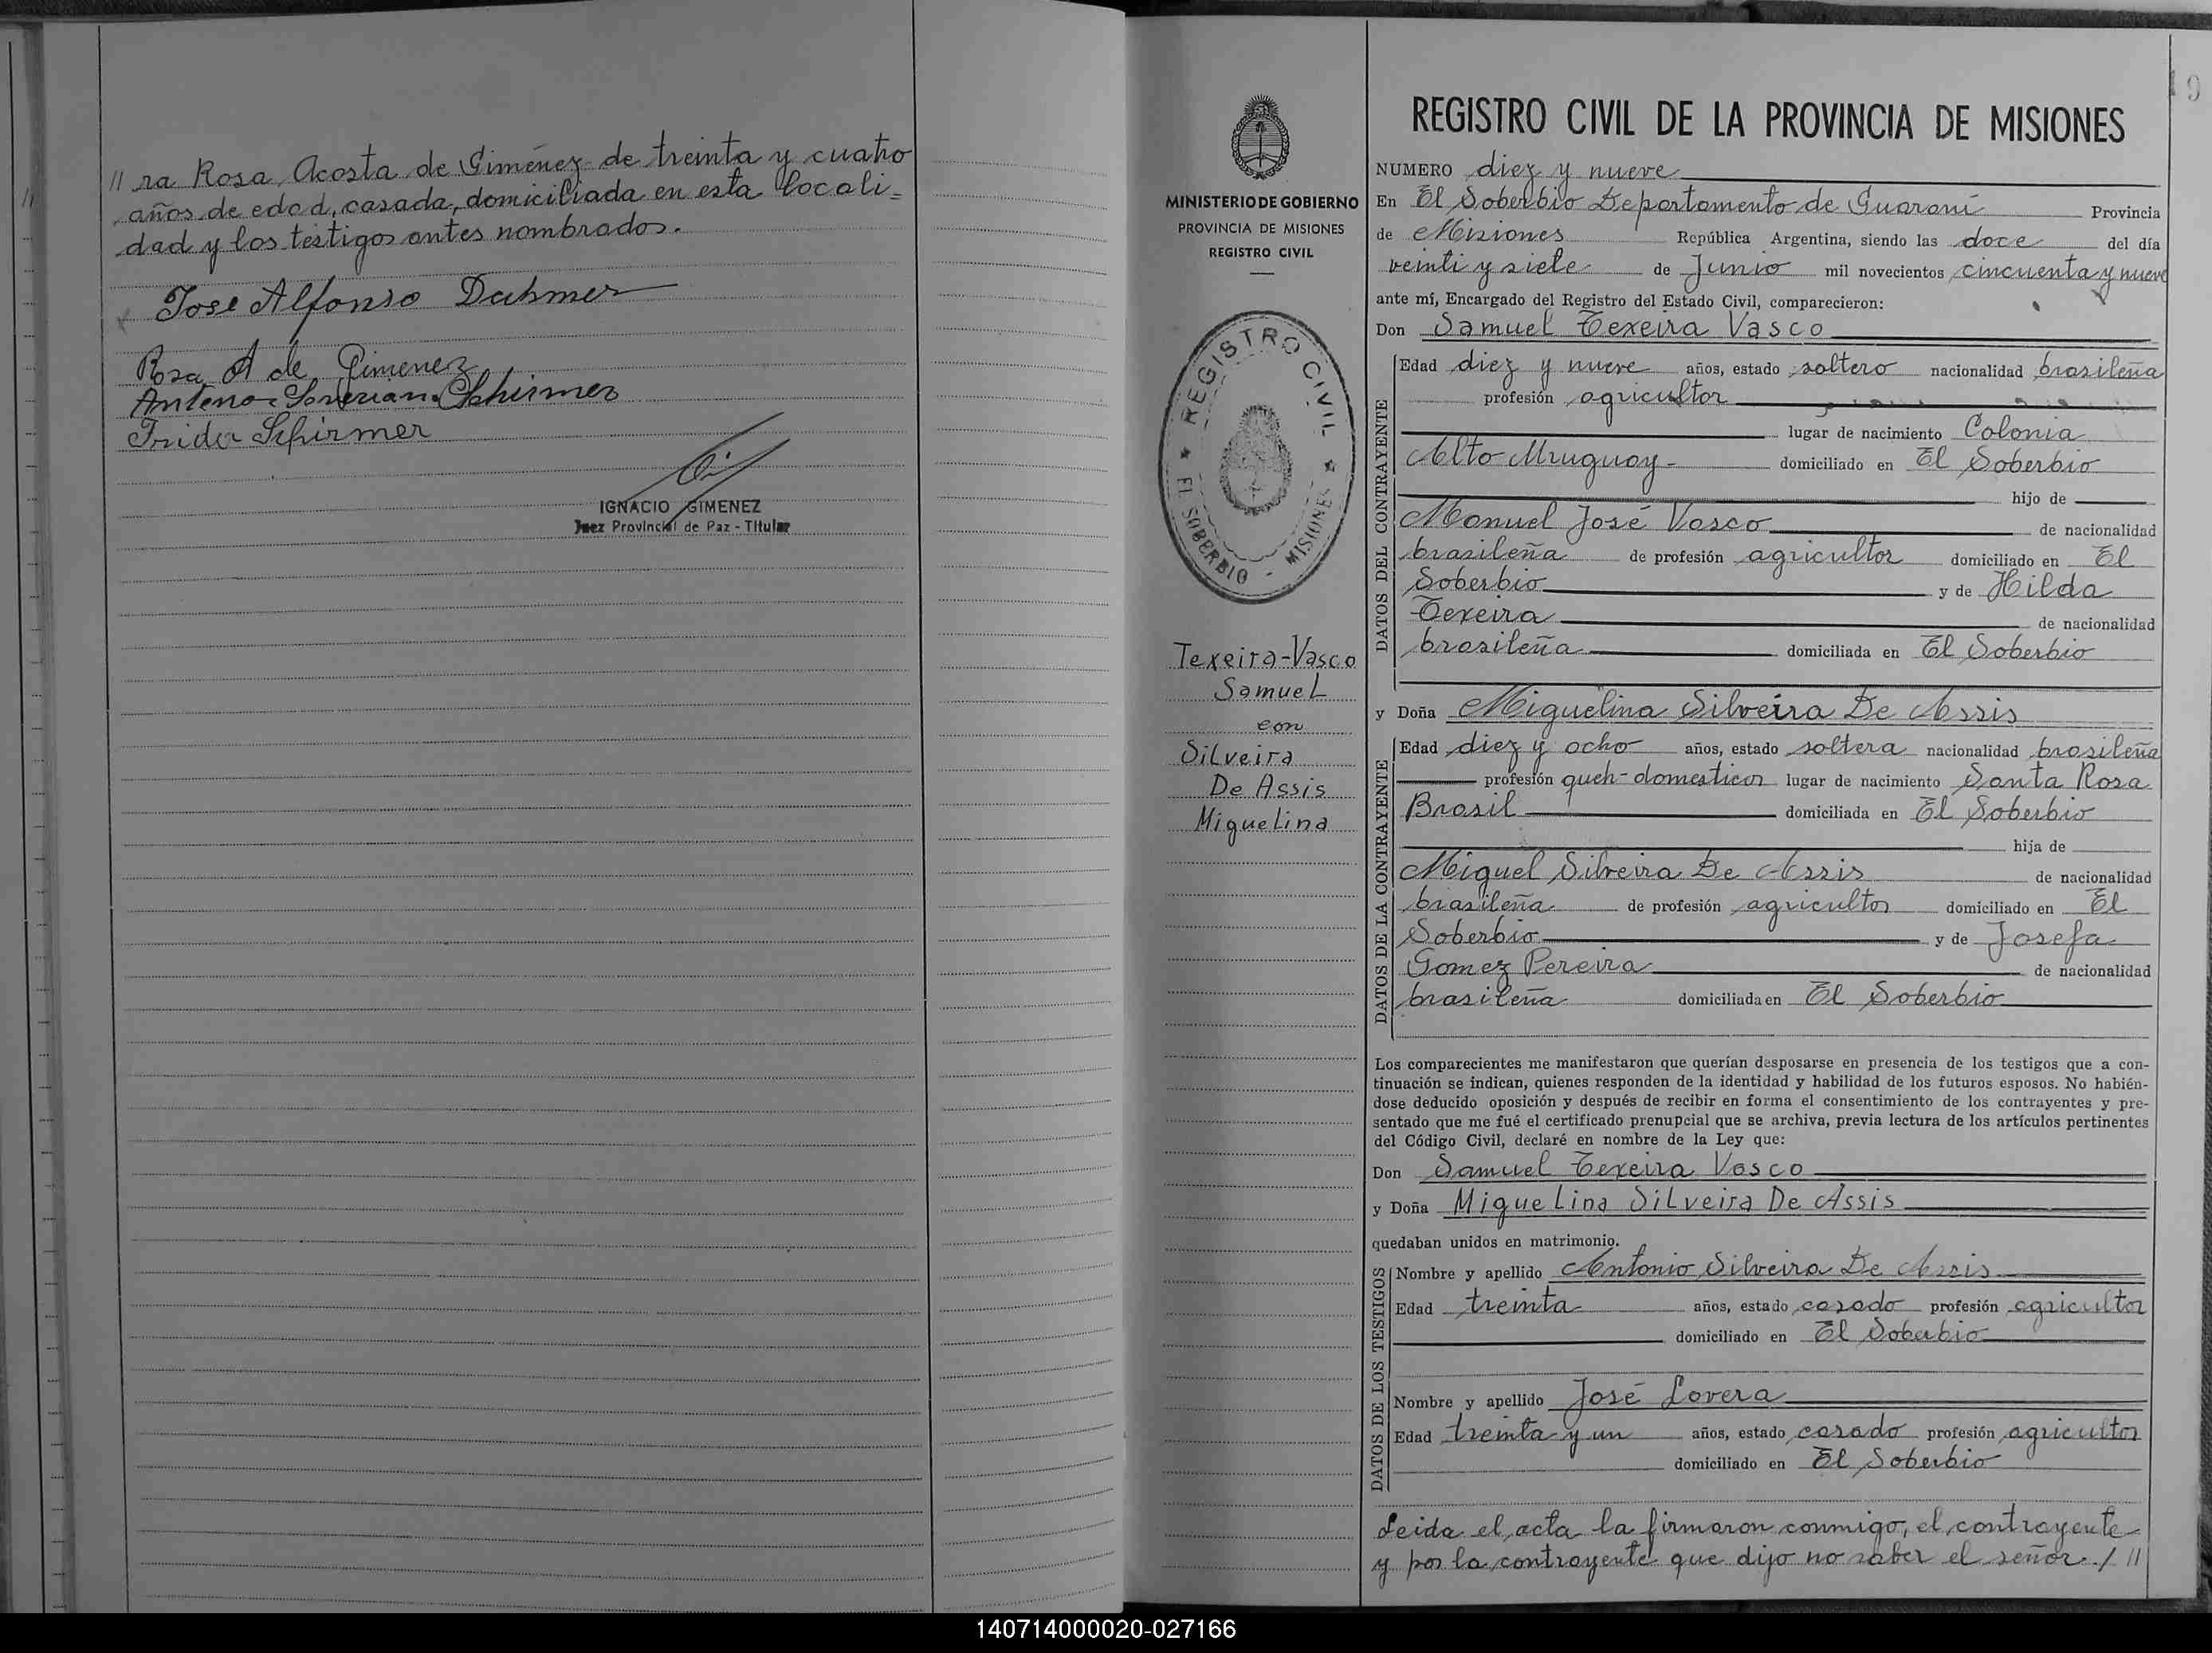 // ra Rosa Acosta de Giménez de treinta y cuatro
años de edad, casada, domiciliada en esta locali=
dad y los testigos antes nombrados.
Jose Alfonso Dahmer
Rosa A de Gimenez
Schirmer
Frida Schirmer
IGNACIO GIMENEZ
Juez Provincial de Paz - Titular
19
MINISTERIO DE GOBIERNO
PROVINCIA DE MISIONES
REGISTRO CIVIL
REGISTRO CIVIL
EL SOBERBIO - MISIONES
Texeira-Vasco
Samuel
con
Silveira
De Assis
Miguelina
REGISTRO CIVIL DE LA PROVINCIA DE MISIONES
NUMERO diez y nueve
En El Soberbio Departamento de Guaraní Provincia
de Misiones República Argentina, siendo las doce del día
veinti y siete de Junio mil novecientos cincuenta y nueve
ante mí, Encargado del Registro del Estado Civil, comparecieron:
Don Samuel Texeira Vasco
DATOS DEL CONTRAYENTE
Edad diez y nueve años, estado soltero nacionalidad brasileña
profesión agricultor
lugar de nacimiento Colonia
Alto Uruguay- domiciliado en El Soberbio
hijo de
Manuel José Vasco de nacionalidad
brasileña de profesión agricultor domiciliado en El
Soberbio y de Hilda
Texeira de nacionalidad
brasileña domiciliada en El Soberbio
y Doña Miguelina Silveira De Assis
DATOS DE LA CONTRAYENTE
Edad diez y ocho años, estado soltera nacionalidad brasileña
profesión queh-domesticos lugar de nacimiento Santa Rosa
Brasil domiciliada en El Soberbio
hija de
Miguel Silveira De Assis de nacionalidad
brasileña de profesión agricultor domiciliado en El
Soberbio y de Josefa
Gomez Pereira de nacionalidad
brasileña domiciliada en El Soberbio
Los comparecientes me manifestaron que querían desposarse en presencia de los testigos que a con-
tinuación se indican, quienes responden de la identidad y habilidad de los futuros esposos. No habién-
dose deducido oposición y después de recibir en forma el consentimiento de los contrayentes y pre-
sentado que me fué el certificado prenupcial que se archiva, previa lectura de los artículos pertinentes
del Código Civil, declaré en nombre de la Ley que:
Don Samuel Texeira Vasco
y Doña Miguelina Silveira De Assis
quedaban unidos en matrimonio.
DATOS DE LOS TESTIGOS
Nombre y apellido Antonio Silveira De Assis
Edad treinta años, estado casado profesión agricultor
domiciliado en El Soberbio
Nombre y apellido José Lovera
Edad treinta y un años, estado casado profesión agricultor
domiciliado en El Soberbio
Leida el acta la firmaron conmigo, el contrayente
y por la contrayente que dijo no saber el señor. / //
140714000020-027166